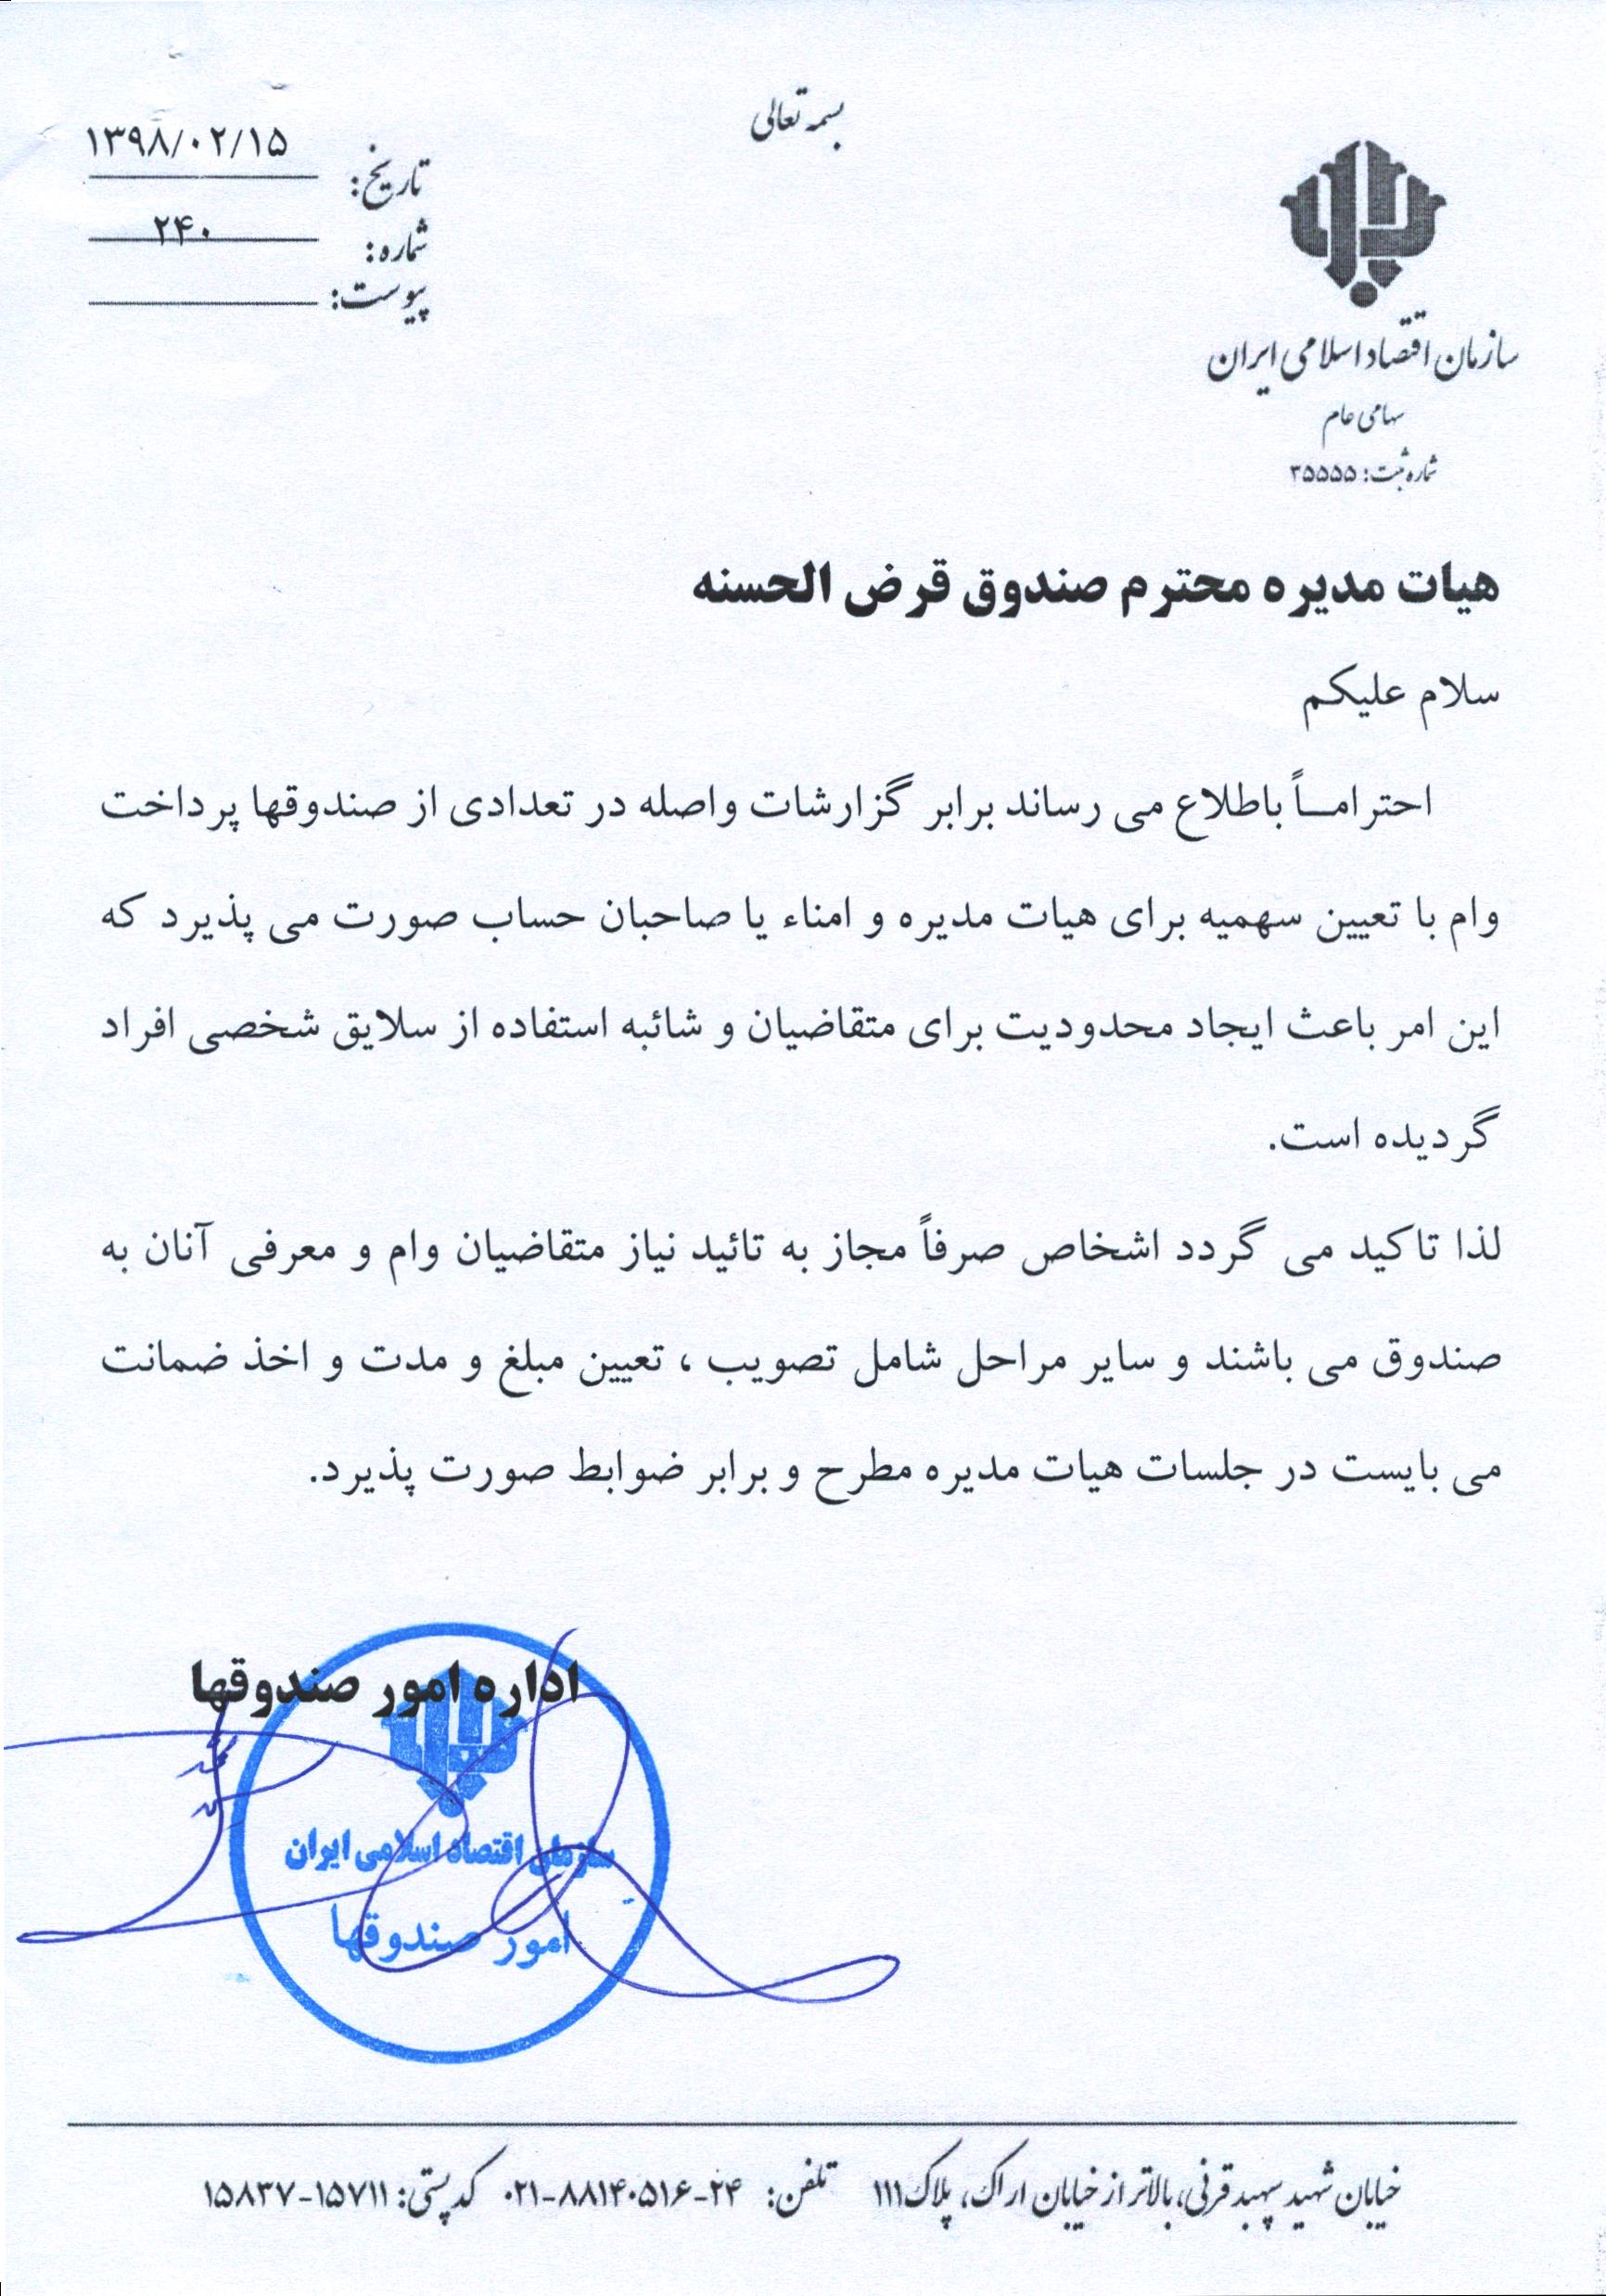 بسمه تعالی
تاریخ: ۱۳۹۸/۰۲/۱۵
شماره: ۲۴۰
پیوست:
سازمان اقتصاد اسلامی ایران
سهامی عام
شماره ثبت: ۳۵۵۵۵
هیات مدیره محترم صندوق قرض الحسنه
سلام علیکم
احتراماً باطلاع می رساند برابر گزارشات واصله در تعدادی از صندوقها پرداخت
وام با تعیین سهمیه برای هیات مدیره و امناء یا صاحبان حساب صورت می پذیرد که
این امر باعث ایجاد محدودیت برای متقاضیان و شائبه استفاده از سلایق شخصی افراد
گردیده است.
لذا تاکید می گردد اشخاص صرفاً مجاز به تائید نیاز متقاضیان وام و معرفی آنان به
صندوق می باشند و سایر مراحل شامل تصویب ، تعیین مبلغ و مدت و اخذ ضمانت
می بایست در جلسات هیات مدیره مطرح و برابر ضوابط صورت پذیرد.
اداره امور صندوقها
سازمان اقتصاد اسلامی ایران
امور صندوقها
خیابان شهید سپهبد قرنی، بالاتر از خیابان اراک، پلاک ۱۱۱ تلفن: ۰۲۱-۸۸۱۴۰۵۱۶-۲۴ کد پستی: ۱۵۸۳۷-۱۵۷۱۱